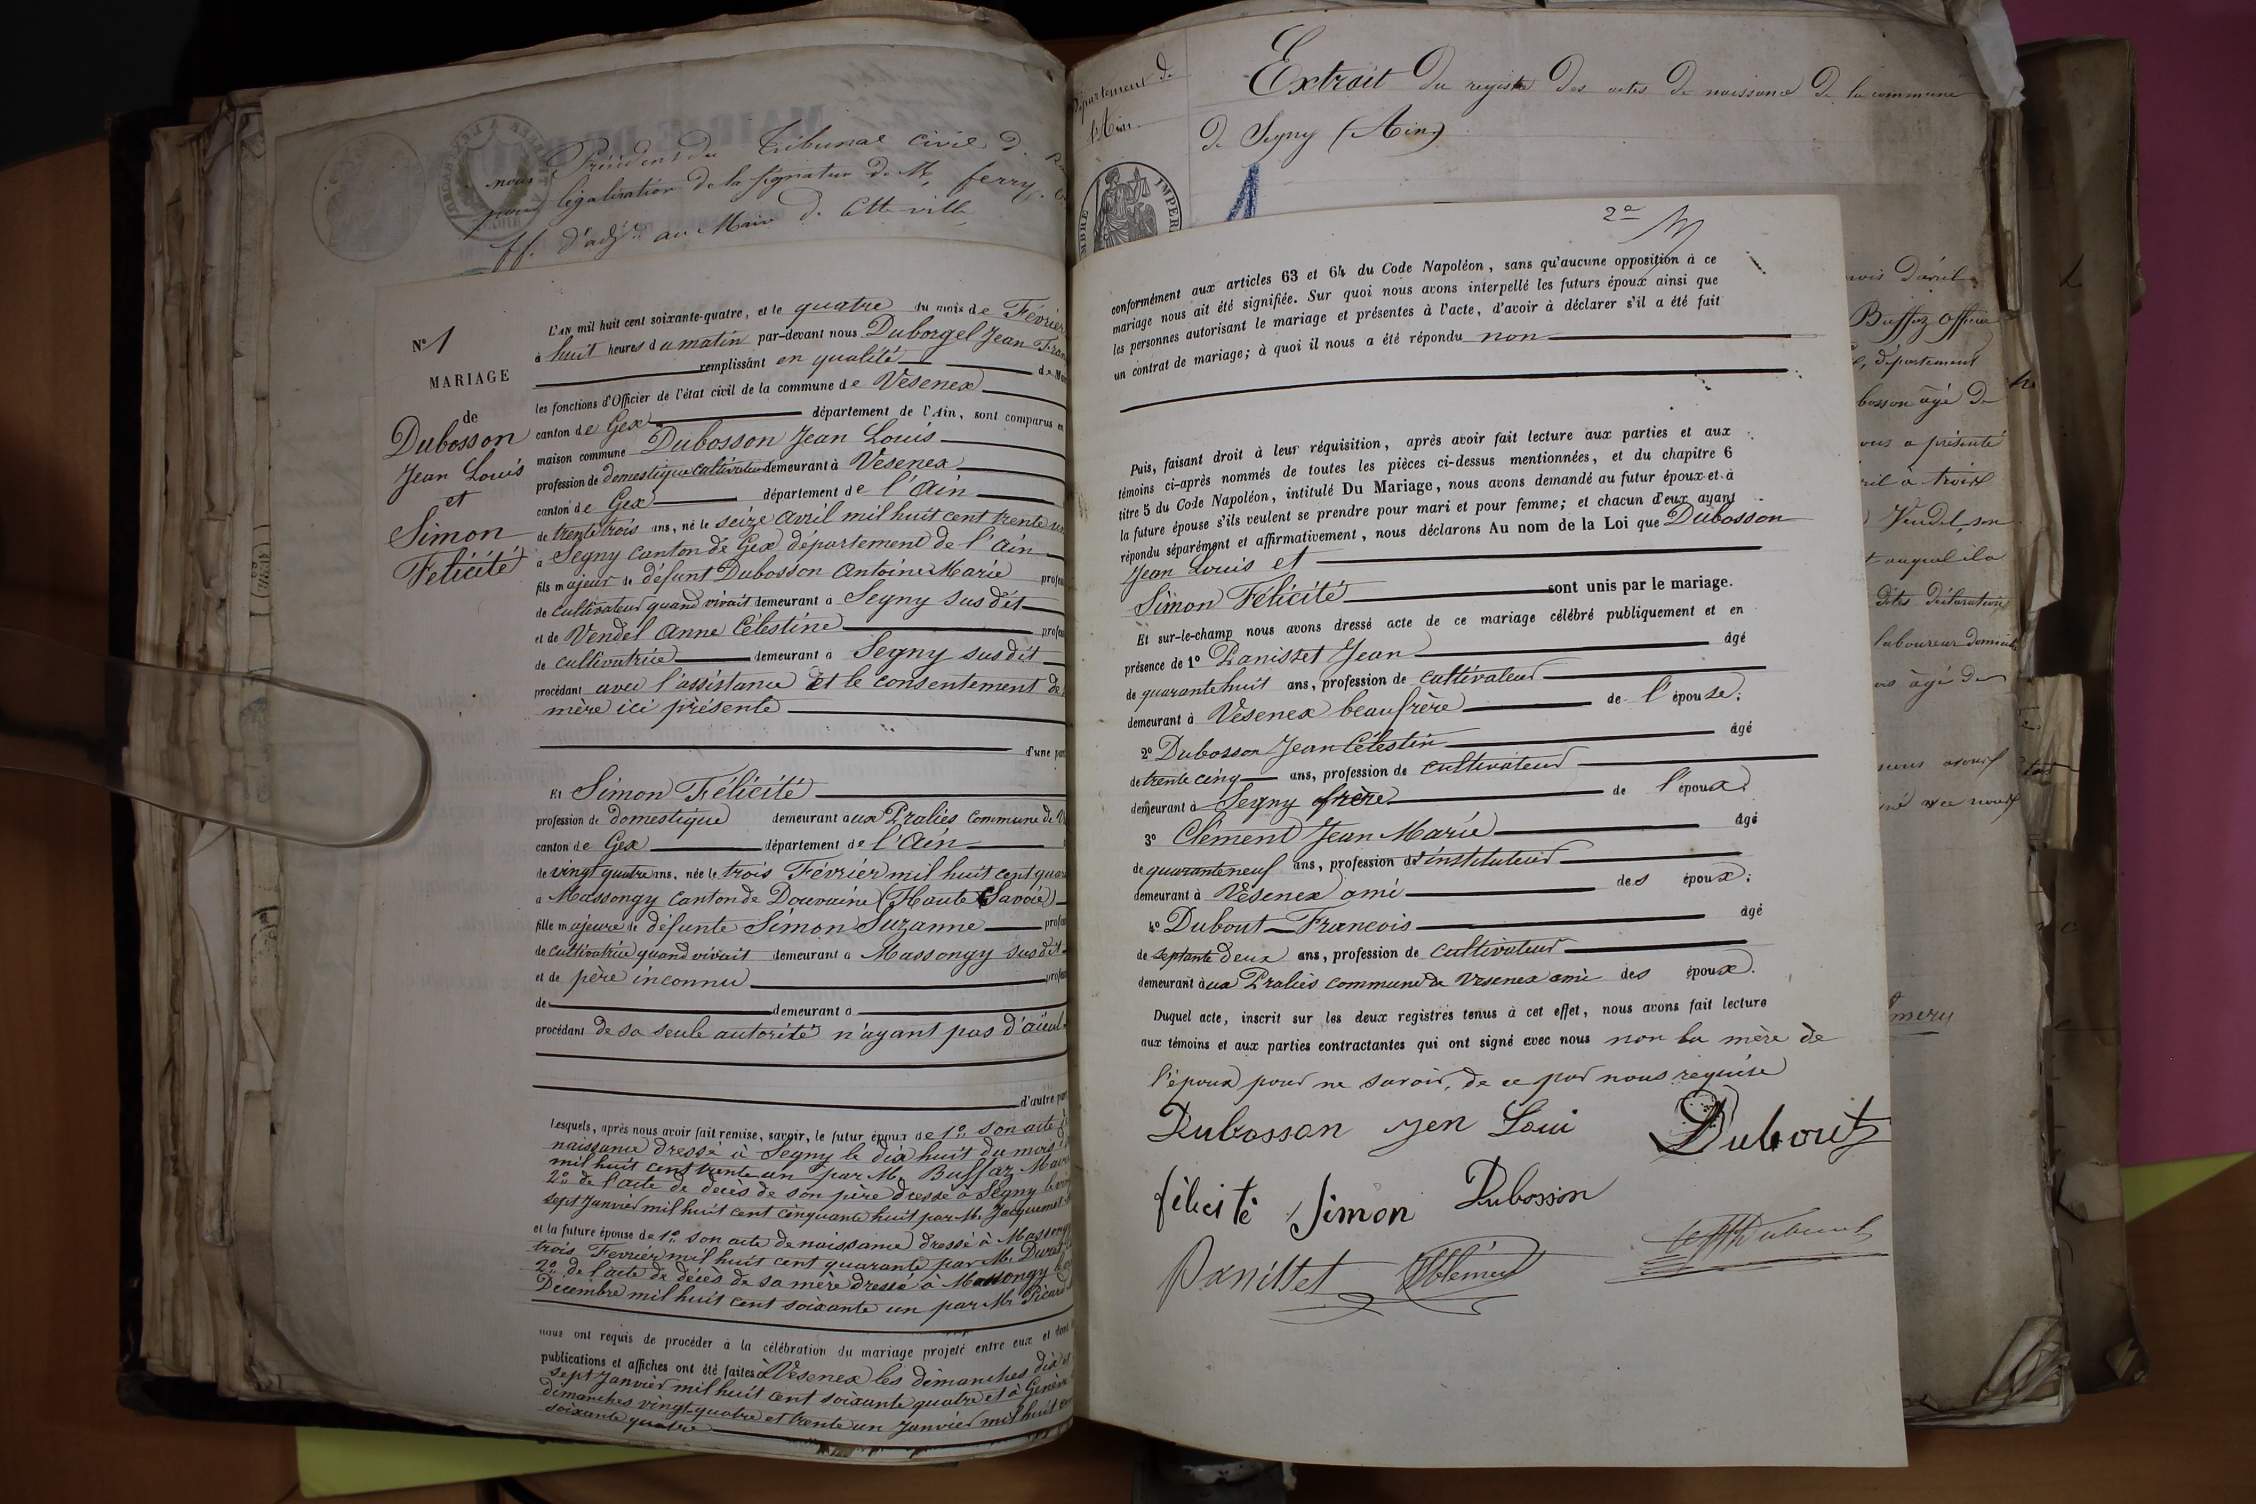 nous Président du Tribunal civil de
pour légalisation de la signature de Mr ferry
ff. d'adjt au Maire de cette ville
N° 1
MARIAGE
de
Dubosson
Jean Louis
et
Simon
Félicité
L'AN mil huit cent soixante-quatre, et le quatre du mois de Février
à huit heures du matin par-devant nous Duborgel Jean
remplissant en qualité de
les fonctions d'Officier de l'état civil de la commune de Vesenex
canton de Gex département de l'Ain, sont comparus en
maison commune Dubosson Jean Louis
profession de domestique cultivateur demeurant à Vesenex
canton de Gex département de l'Ain
de trente trois ans, né le seize avril mil huit cent trente un
à Segny canton de Gex département de l'Ain
fils majeur de défunt Dubosson Antoine Marie
de cultivateur quand vivait demeurant à Segny susdit
et de Vendel Anne Célestine
de cultivatrice demeurant à Segny susdit
procédant avec l'assistance et le consentement de
mère ici présente
d'une part
Et Simon Félicité
profession de domestique demeurant aux Praliès commune de
canton de Gex département de l'Ain
de vingt quatre ans, née le trois Février mil huit cent
à Massongy canton de Douvaine (Haute Savoie)
fille majeure de défunte Simon Suzanne
de cultivatrice quand vivait demeurant à Massongy susdit
et de père inconnu
de demeurant à
procédant de sa seule autorité n'ayant pas d'aïeul
d'autre part
Lesquels, après nous avoir fait remise, savoir, le futur époux de 1° son acte de
naissance dressé à Segny le dix huit du mois
mil huit cent trente un par Mr Buffaz Maire
2° de l'acte de décès de son père dressé à Segny le
sept Janvier mil huit cent cinquante huit par Mr Jacquemet
et la future épouse de 1° son acte de naissance dressé à Massongy
trois Février mil huit cent quarante par Mr
2° de l'acte de décès de sa mère dressé à Massongy
Décembre mil huit cent soixante un par Mr Picard
nous ont requis de procéder à la célébration du mariage projeté entre eux et dont
publications et affiches ont été faites à Vesenex les dimanches dix et
sept Janvier mil huit cent soixante quatre et à Genève
dimanches vingt-quatre et trente un Janvier mil huit
soixante quatre
Département de
l'Ain
Extrait du registre des actes de naissance de la commune
de Segny (Ain)
TIMBRE IMPERI
1
2e
conformément aux articles 63 et 64 du Code Napoléon, sans qu'aucune opposition à ce
mariage nous ait été signifiée. Sur quoi nous avons interpellé les futurs époux ainsi que
les personnes autorisant le mariage et présentes à l'acte, d'avoir à déclarer s'il a été fait
un contrat de mariage; à quoi il nous a été répondu non
Puis, faisant droit à leur réquisition, après avoir fait lecture aux parties et aux
témoins ci-après nommés de toutes les pièces ci-dessus mentionnées, et du chapitre 6
titre 5 du Code Napoléon, intitulé Du Mariage, nous avons demandé au futur époux et à
la future épouse s'ils veulent se prendre pour mari et pour femme; et chacun d'eux ayant
répondu séparément et affirmativement, nous déclarons Au nom de la Loi que Dubosson
Jean Louis et
Simon Félicité sont unis par le mariage.
Et sur-le-champ nous avons dressé acte de ce mariage célébré publiquement et en
présence de 1° Panisset Jean âgé
de quarante huit ans, profession de cultivateur
demeurant à Vesenex beaufrère de l'épouse;
2° Dubosson Jean Célestin âgé
de trente cinq ans, profession de cultivateur
demeurant à Segny frère de l'époux;
3° Clement Jean Marie âgé
de quarante neuf ans, profession d'instituteur
demeurant à Vesenex ami des époux;
4° Dubout François âgé
de septante deux ans, profession de cultivateur
demeurant aux Praliès commune de Vesenex ami des époux.
Duquel acte, inscrit sur les deux registres tenus à cet effet, nous avons fait lecture
aux témoins et aux parties contractantes qui ont signé avec nous non la mère de
l'époux pour ne savoir, de ce par nous requise
Dubosson jen Loui Dubout
félicité Simon Dubosson
Panisset Clément
mois d'avril
Buffaz officier
département
bosson âgé de
vous a présenté
avril à trois
Vendel, son
et auquel il a
dites déclarations
laboureur domicilié
âgé de
nous avons
avec nous